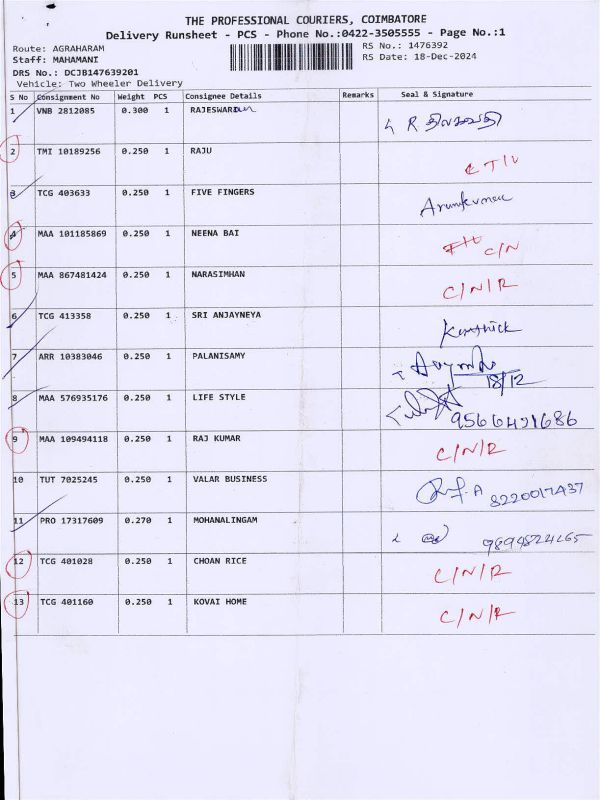 THE PROFESSIONAL COURIERS, COIMBATORE
Delivery Runsheet - PCS - Phone No.:0422-3505555 - Page No.:1
Route: AGRAHARAM
RS No.: 1476392
Staff: MAHAMANI
RS Date: 18-Dec-2024
DRS No.: DCJB147639201
Vehicle: Two Wheeler Delivery
S No Consignment No Weight PCS Consignee Details Remarks Seal & Signature
1 VNB 2812085 0.300 1 RAJESWARI
2 TMI 10189256 0.250 1 RAJU
3 TCG 403633 0.250 1 FIVE FINGERS Arunkumar
4 MAA 101185869 0.250 1 NEENA BAI C/N
5 MAA 867481424 0.250 1 NARASIMHAN C/N/R
6 TCG 413358 0.250 1 SRI ANJAYNEYA Karthick
7 ARR 10383046 0.250 1 PALANISAMY
18/12
8 MAA 576935176 0.250 1 LIFE STYLE 9566421686
9 MAA 109494118 0.250 1 RAJ KUMAR C/N/R
10 TUT 7025245 0.250 1 VALAR BUSINESS 8220017437
11 PRO 17317609 0.270 1 MOHANALINGAM
12 TCG 401028 0.250 1 CHOAN RICE C/N/R
13 TCG 401160 0.250 1 KOVAI HOME C/N/R